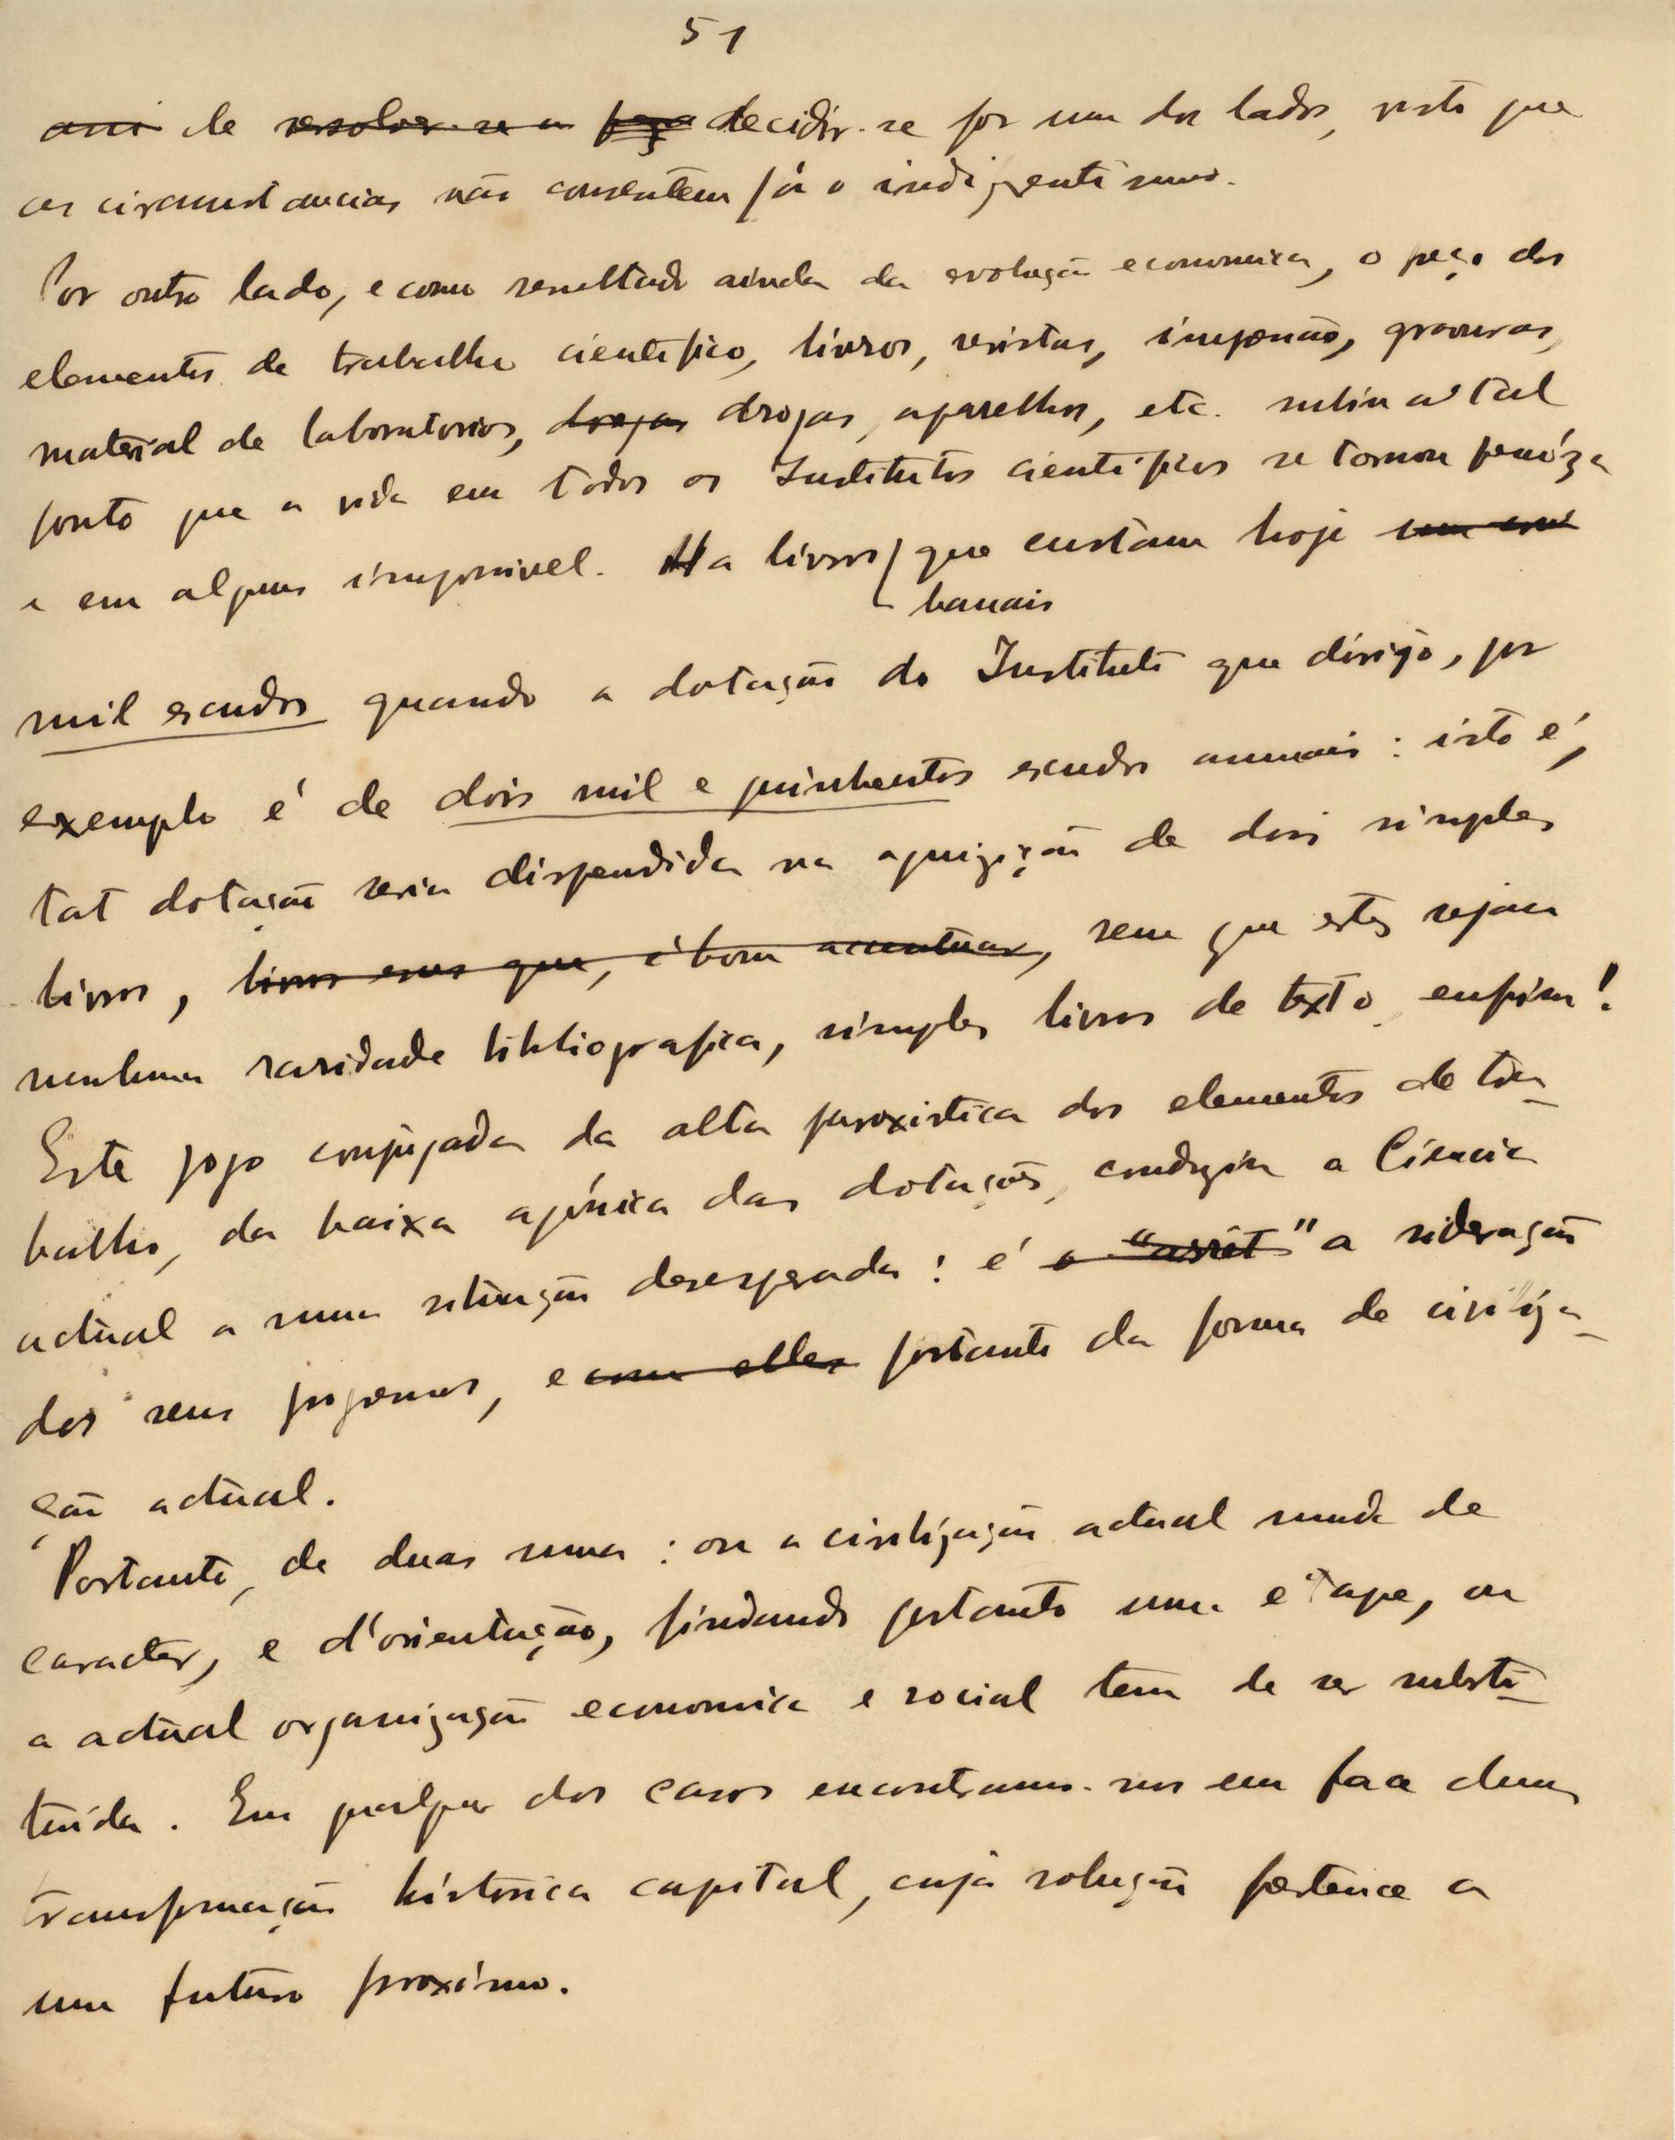 51
de decidir-se por um dos lados, visto que
as circumstancias não consentem já o indigentismo.
Por outro lado, e como resultado ainda da evolução economica, o preço dos
elementos de trabalho cientifico, livros, revistas, impressão, gravuras,
material de laboratorios, drogas drogas, aparelhos, etc. subiu a tal
ponto que a vida em todos os Institutos cientificos se tornou penóza
e em alguns impossivel. Ha livros que custam hoje
banais
mil escudos quando a dotação do Instituto que dirijo, por
exemplo é de dois mil e quinhentos escudos anuais: isto é,
tal dotação seria dispendida na aquizição de dois simples
livros, livros esses que, é bom accentuar, sem que estes sejam
nenhuma raridade bibliografica, simples livros de texto enfim!
Este jogo conjugada da alta paroxistica dos elementos de tra-
balho, da baixa agónica das dotações, conduziu a Ciencia
actual a uma situação desesperada: é o "arrêt" a sideração
dos seus progressos, e com elles portanto da forma de civiliza-
ção actual.
Portanto, de duas uma: ou a civilização actual muda de
caracter, e d'orientação, findando portanto uma etape, ou
a actual organização economica e social tem de ser substi-
tuida. Em qualquer dos casos encontramo-nos em face duma
transformação historica capital, cuja solução pertence a
um futuro proximo.